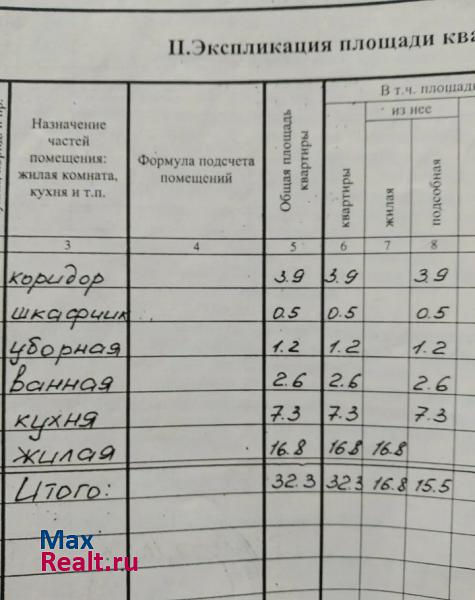 II.Экспликация площади ква
В т.ч. площади
Назначение частей помещения: жилая комната, кухня и т.п.
Формула подсчета помещений
Общая площадь квартиры
квартиры
из нее
жилая
подсобная
3 4 5 6 7 8
коридор 3.9 3.9 3.9
шкафчик 0.5 0.5 0.5
уборная 1.2 1.2 1.2
ванная 2.6 2.6 2.6
кухня 7.3 7.3 7.3
жилая 16.8 16.8 16.8
Итого: 32.3 32.3 16.8 15.5
Max
Realt.ru